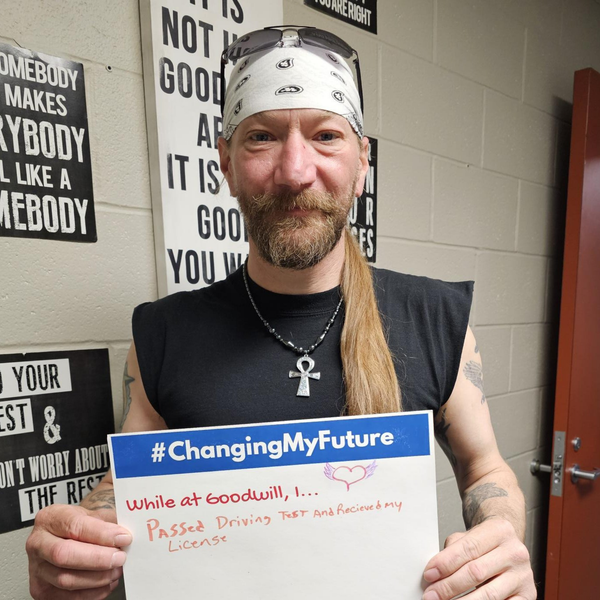 YOU ARE RIGHT
IT IS
NOT
GOOD
IT IS
GOO
YOU W
OMEBODY
MAKES
RYBODY
L LIKE A
MEBODY
O YOUR
EST &
ON'T WORRY ABOUT
THE REST
#ChangingMyFuture
While at Goodwill, I...
Passed Driving Test And Recieved my
License